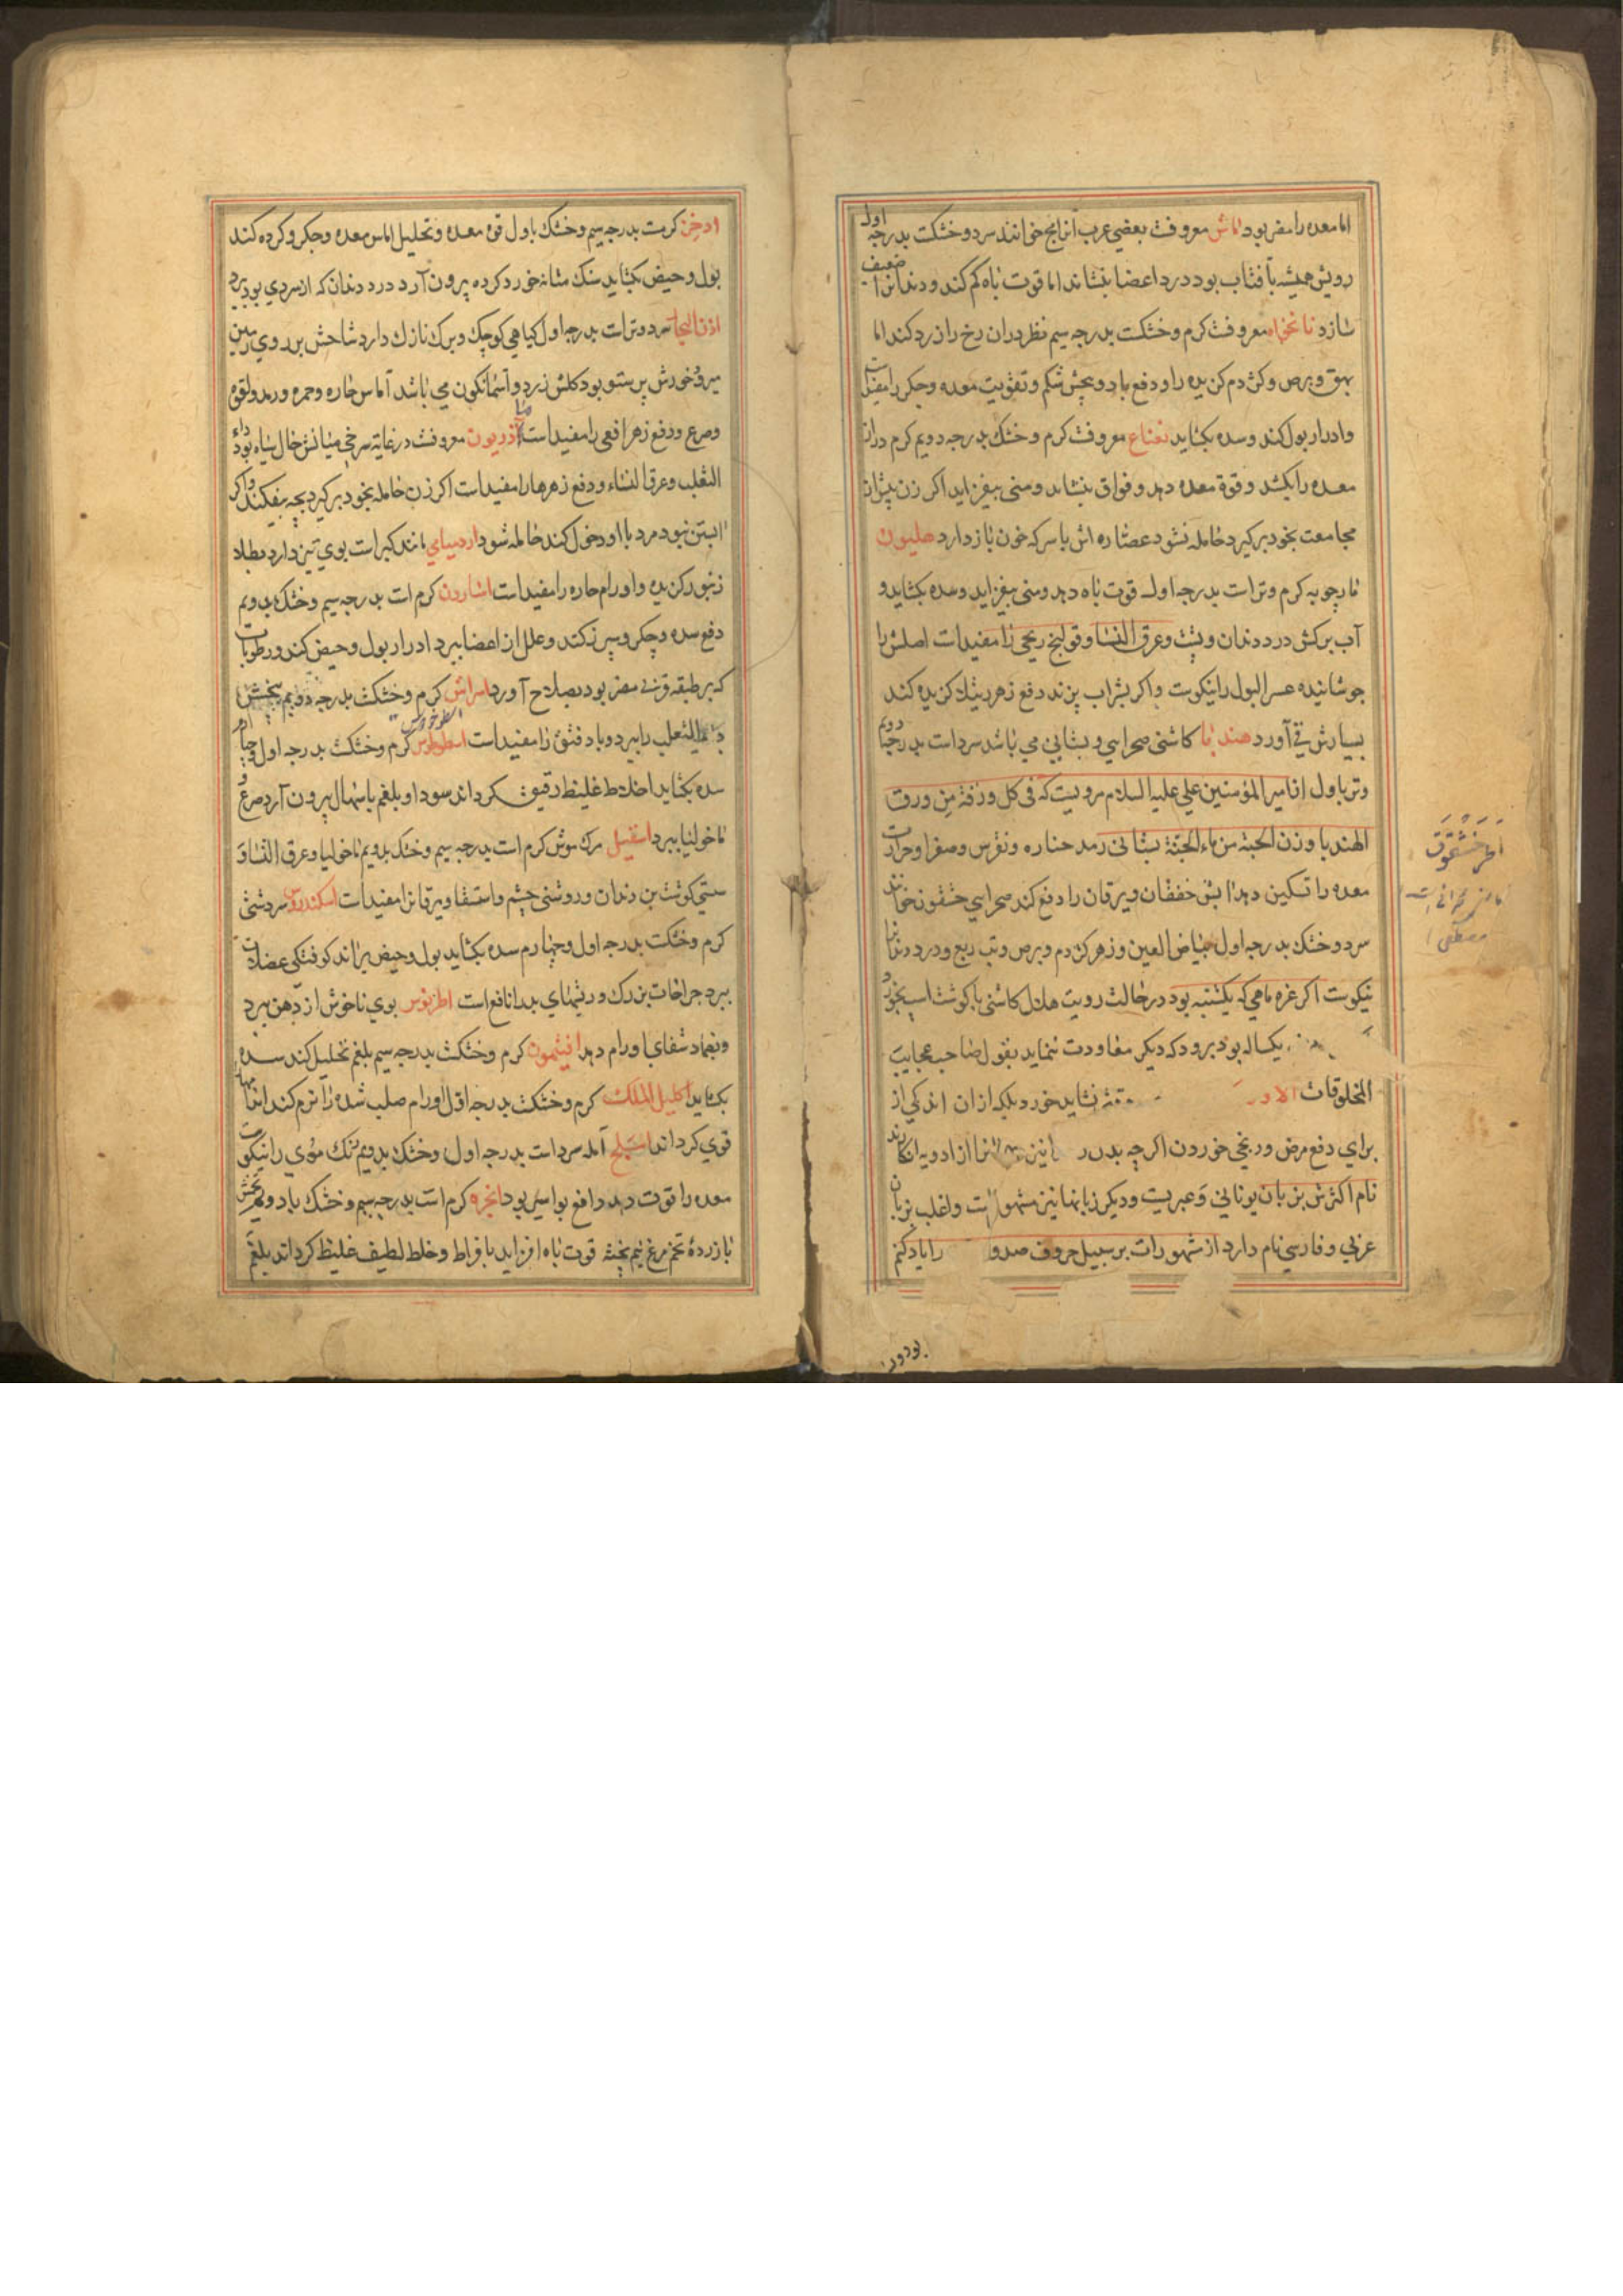 اما معده را مضر بود ماش معروفست بعضی عرب آنرا مج خوانند سرد و خشکست بدرجه اول
رویش همیشه بآفتاب بود درد اعضا بنشاند اما قوت باه کم کند و دندانرا ضعیف
سازد نانخواه معروفست کرم و خشکست بدرجه سیم نظر در آن رخ را زرد کند اما
بهق و برص و کژدم کزیده را و دفع باد و پیچش شکم و تقویت معده و جکر را مفیدست
و ادرار بول کند و سده بکشاید نعناع معروفست کرم و خشک بدرجه دویم کرم دراز
معده را بکشد و قوة معده دهد و فواق بنشاند و منی بیفزاید اکر زن پیش از
مجامعت بخود برکیرد حامله نشود عصاره اش با سرکه خون باز دارد هلیون
مارچوبه کرم و تر است بدرجه اول قوت باه دهد و منی بیفزاید و سده بکشاید و
آب برکش درد دندان و پشت و عرق النسا و قولنج ریحی را مفید است اصلش را
جوشانیده عسر البول را نیکوست و اکر بشراب پزند دفع زهر رتیلا کزیده کند
بسیارش قی آورد هندبا کاسنی صحرایی و بستانی می باشد سرد است بدرجه دویم
و تر باول از امیر المؤمنین علی علیه السلام مرویست که فی کل ورقة من ورق
الهندبا وزن الحبة من ماء الجنة بستانی رمد حاره و نقرس و صفرا و حرارت
معده را تسکین دهد آبش خفقان و یرقان را دفع کند صحرایی خشقون خوانند
سرد و خشک بدرجه اول بیاض العین و زهر کژدم و برص و تب ربع و درد دندانرا
نیکوست اکر غره ماهی که یکشنبه بود در حالت رویت هلال کاسنی با کوشت اسب بخورد
یکساله بود برود که دیکر معاودت ننماید بقول صاحب عجایب
المخلوقات نشاید خورد بلکه از آن اندکی از
برای دفع مرض و رنجی خوردن اکرچه بدن را از ادویه
نام اکثرش بزبان یونانی و عبریست و دیکر زبانها نیز مشهور است و اغلب بزبان
عربی و فارسی نام دارد از مشهورات بر سبیل حروف را یاد کنم
مصطفی
اذخر کرمست بدرجه سیم و خشک باول قوة معده و تحلیل اماس معده و جکر و کرده کند
بول و حیض بکشاید سنک مثانه خورد کرده بیرون آرد درد دندان که از سردی بود ببرد
سرد و تر است بدرجه اول کیاهی کوچک و برک نازک دارد شاخش بر روی زمین
میرود خورش پرستو بود کلش زرد و آسمانکون می باشد آماس حاره و حمره و رمد و لقوه
و صرع و دفع زهر افعی را مفید است آذریون معروفست در غایة سرخی میانش خال سیاه بود داء
الثعلب و عرق النساء و دفع زهرها را مفید است اکر زن حامله بخود برکیرد بچه بیفکند و اکر
آبستن نبود مرد با او دخول کند حامله شود مانند کبر است بوی تیز دارد بطلاء
زنبور کزیده و اورام حاره را مفید است اسارون کرم است بدرجه سیم و خشک بدویم
دفع سده و جکر و سپرز کند و علل از اعضا ببرد ادرار بول و حیض کند و رطوبات
که بر طبقه قرنی مضر بود بصلاح آورد اسراش کرم و خشکست بدرجه دویم
داء الثعلب را ببرد و باد فتق را مفید است کرم و خشکست بدرجه اول
اسطوخودوس
سده بکشاید اخلاط غلیظ رقیق کرداند سودا و بلغم باسهال بیرون آرد صرع و
ماخولیا ببرد اسقیل مرک موش کرم است بدرجه سیم و خشک بدویم ماخولیا و عرق النسا و
سستی کوشت بن دندان و روشنی چشم و استسقا و یرقانرا مفید است
کرم و خشکست بدرجه اول و چهارم سده بکشاید بول و حیض براند کوفتکی عضلات
ببرد جراحات بزرک و ریشهای بد را نافع است بوی ناخوش از دهن ببرد
و بضماد شفای اورام دهد افتیمون کرم و خشکست بدرجه سیم بلغم تحلیل کند سده
بکشاید اکلیل الملک کرم و خشکست بدرجه اول اورام صلب شده را نرم کند
قوی کرداند املج آمله سرد است بدرجه اول و خشک بدویم رنک موی را نیکوست
معده را قوت دهد دافع بواسیر بود انجره کرم است بدرجه سیم و خشک بدویم تخمش
با زرده تخم مرغ نیم پخته قوت باه افزاید بافراط و خلط لطیف غلیظ کرداند بلغم